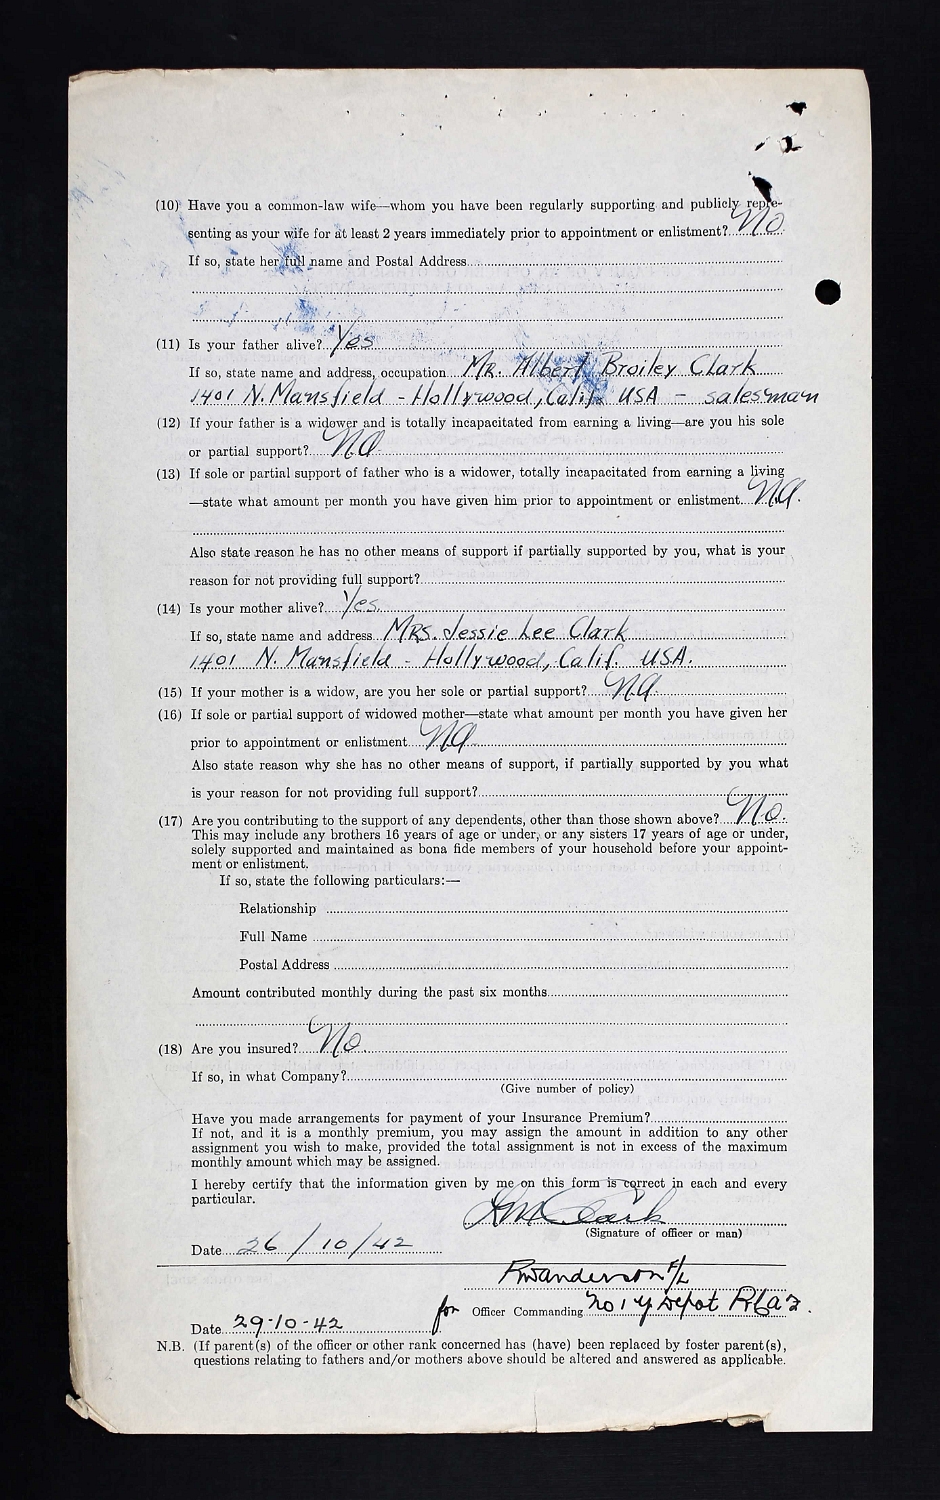 (10) Have you a common-law wife—whom you have been regularly supporting and publicly repre-
senting as your wife for at least 2 years immediately prior to appointment or enlistment? No
If so, state her full name and Postal Address
(11) Is your father alive? Yes
If so, state name and address, occupation Mr. Albert Broiley Clark
1401 N. Mansfield - Hollywood, Calif. USA - salesman
(12) If your father is a widower and is totally incapacitated from earning a living—are you his sole
or partial support? NA
(13) If sole or partial support of father who is a widower, totally incapacitated from earning a living
—state what amount per month you have given him prior to appointment or enlistment. NA.
Also state reason he has no other means of support if partially supported by you, what is your
reason for not providing full support?
(14) Is your mother alive? Yes
If so, state name and address Mrs. Jessie Lee Clark
1401 N. Mansfield - Hollywood, Calif. USA.
(15) If your mother is a widow, are you her sole or partial support? NA
(16) If sole or partial support of widowed mother—state what amount per month you have given her
prior to appointment or enlistment NA
Also state reason why she has no other means of support, if partially supported by you what
is your reason for not providing full support?
(17) Are you contributing to the support of any dependents, other than those shown above? No.
This may include any brothers 16 years of age or under, or any sisters 17 years of age or under,
solely supported and maintained as bona fide members of your household before your appoint-
ment or enlistment.
If so, state the following particulars:—
Relationship
Full Name
Postal Address
Amount contributed monthly during the past six months
(18) Are you insured? No.
If so, in what Company?
(Give number of policy)
Have you made arrangements for payment of your Insurance Premium?
If not, and it is a monthly premium, you may assign the amount in addition to any other
assignment you wish to make, provided the total assignment is not in excess of the maximum
monthly amount which may be assigned.
I hereby certify that the information given by me on this form is correct in each and every
particular.
Clark
(Signature of officer or man)
Date 26/10/42
RWAnderson F/L
for Officer Commanding No 1 Y Depot
Date 29-10-42
N.B. (If parent(s) of the officer or other rank concerned has (have) been replaced by foster parent(s),
questions relating to fathers and/or mothers above should be altered and answered as applicable.